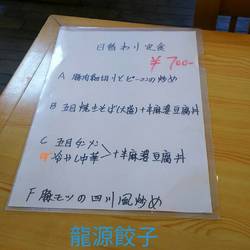 日替わり定食
￥700-
A 豚肉細切りとピーマンの炒め
B 五目焼きそば(大盛)+半麻婆豆腐丼
C 五目タンメン
冷やし中華>+半麻婆豆腐丼
F 豚モツの四川風炒め
龍源餃子